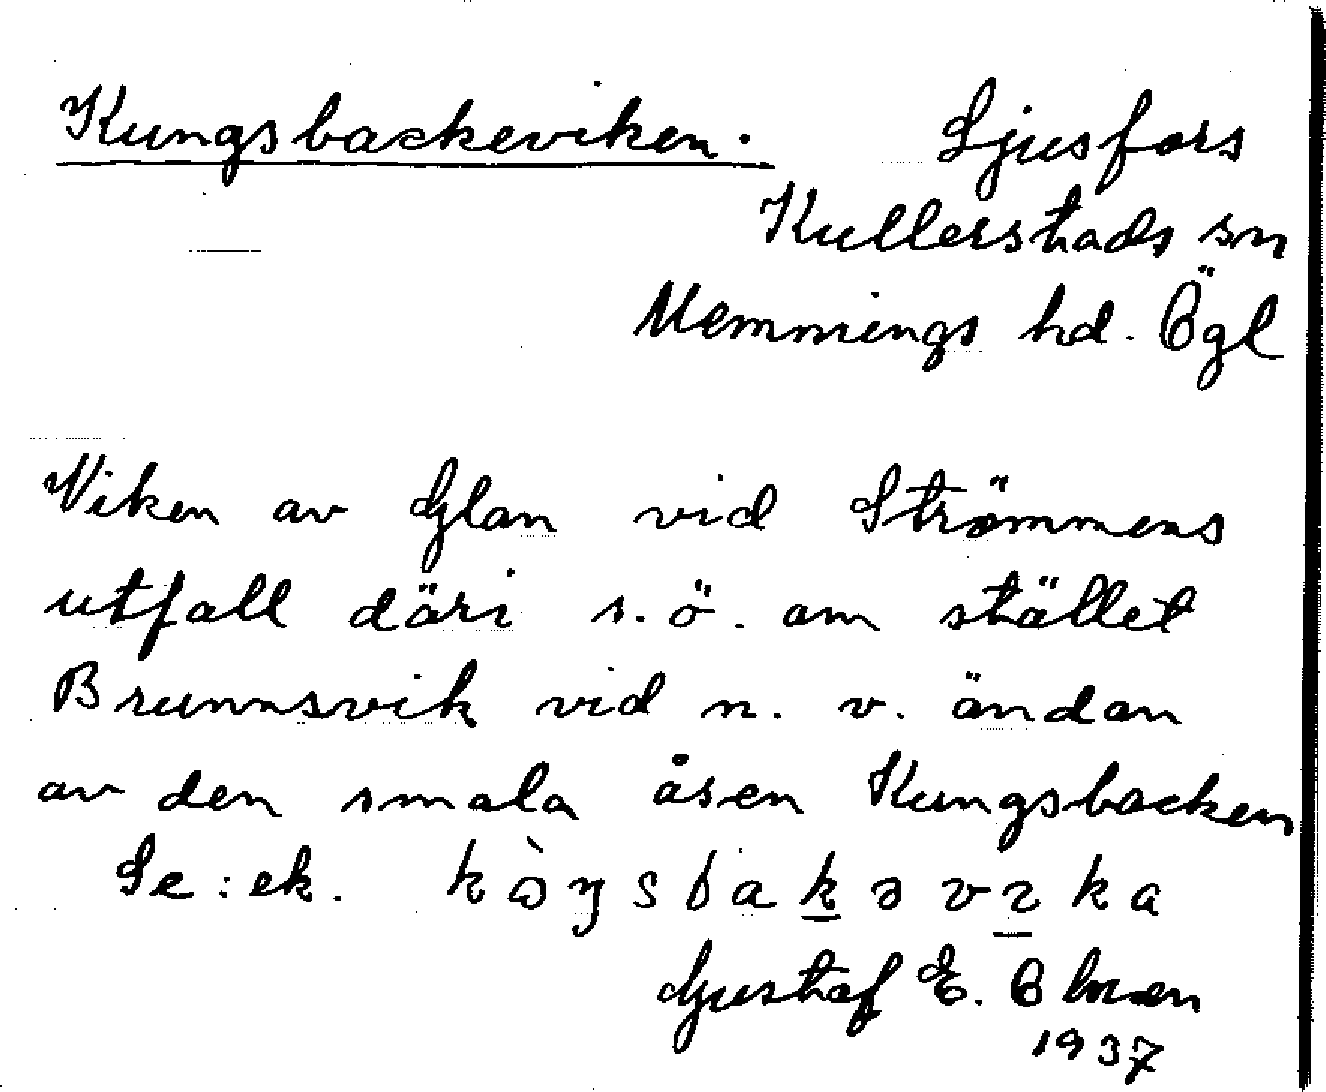 Kungsbackeviken.
Ljusfors
Kullerstads sn
Memmings hd. Ögl
Viken av Glan vid Strömmens
utfall däri s.ö. om stället
Brunnsvik vid n.v. ändan
av den smala åsen Kungsbacken
Se: ek. kòŋsbakəvıka
Gustaf E.
1937